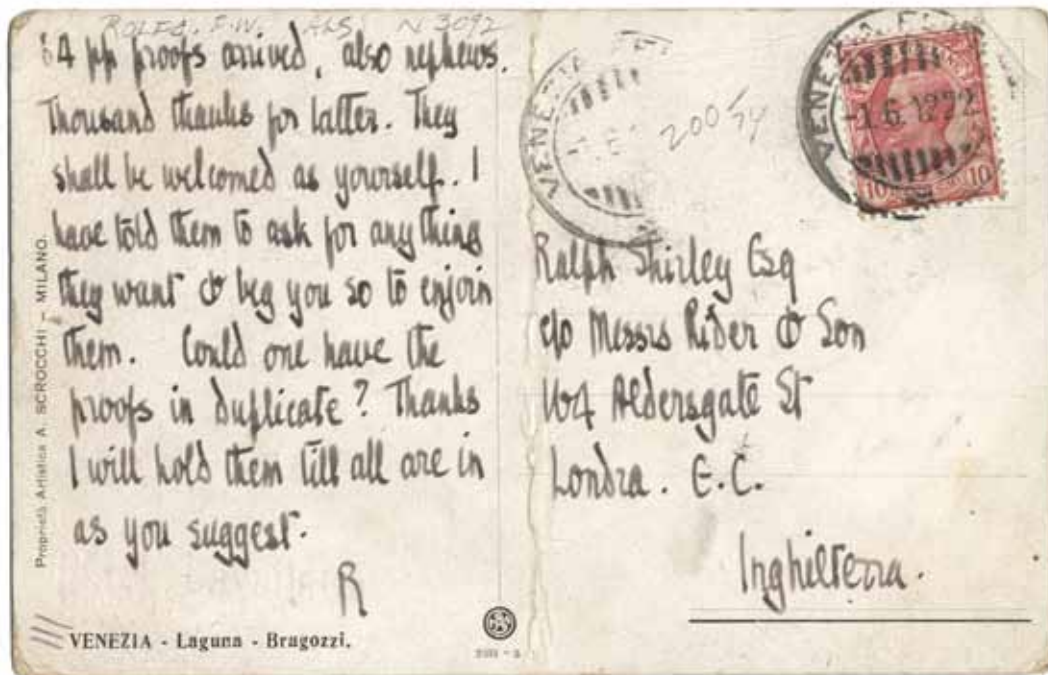 ROLFE. F.W. ALS N 3092
64 pp proofs arrived, also nephews.
Thousand thanks for latter. They
shall be welcomed as yourself. I
have told them to ask for anything
they want & beg you so to enjoin
them. Could one have the
proofs in duplicate? Thanks
I will hold them till all are in
as you suggest.
R
Proprietà Artistica A. SCROCCHI - MILANO.
VENEZIA - Laguna - Bragozzi.
VENEZIA
VENEZIA
-1.6.
10 10
Ralph Shirley Esq
c/o Messrs Rider & Son
164 Aldersgate St
Londra. E.C.
Inghilterra.